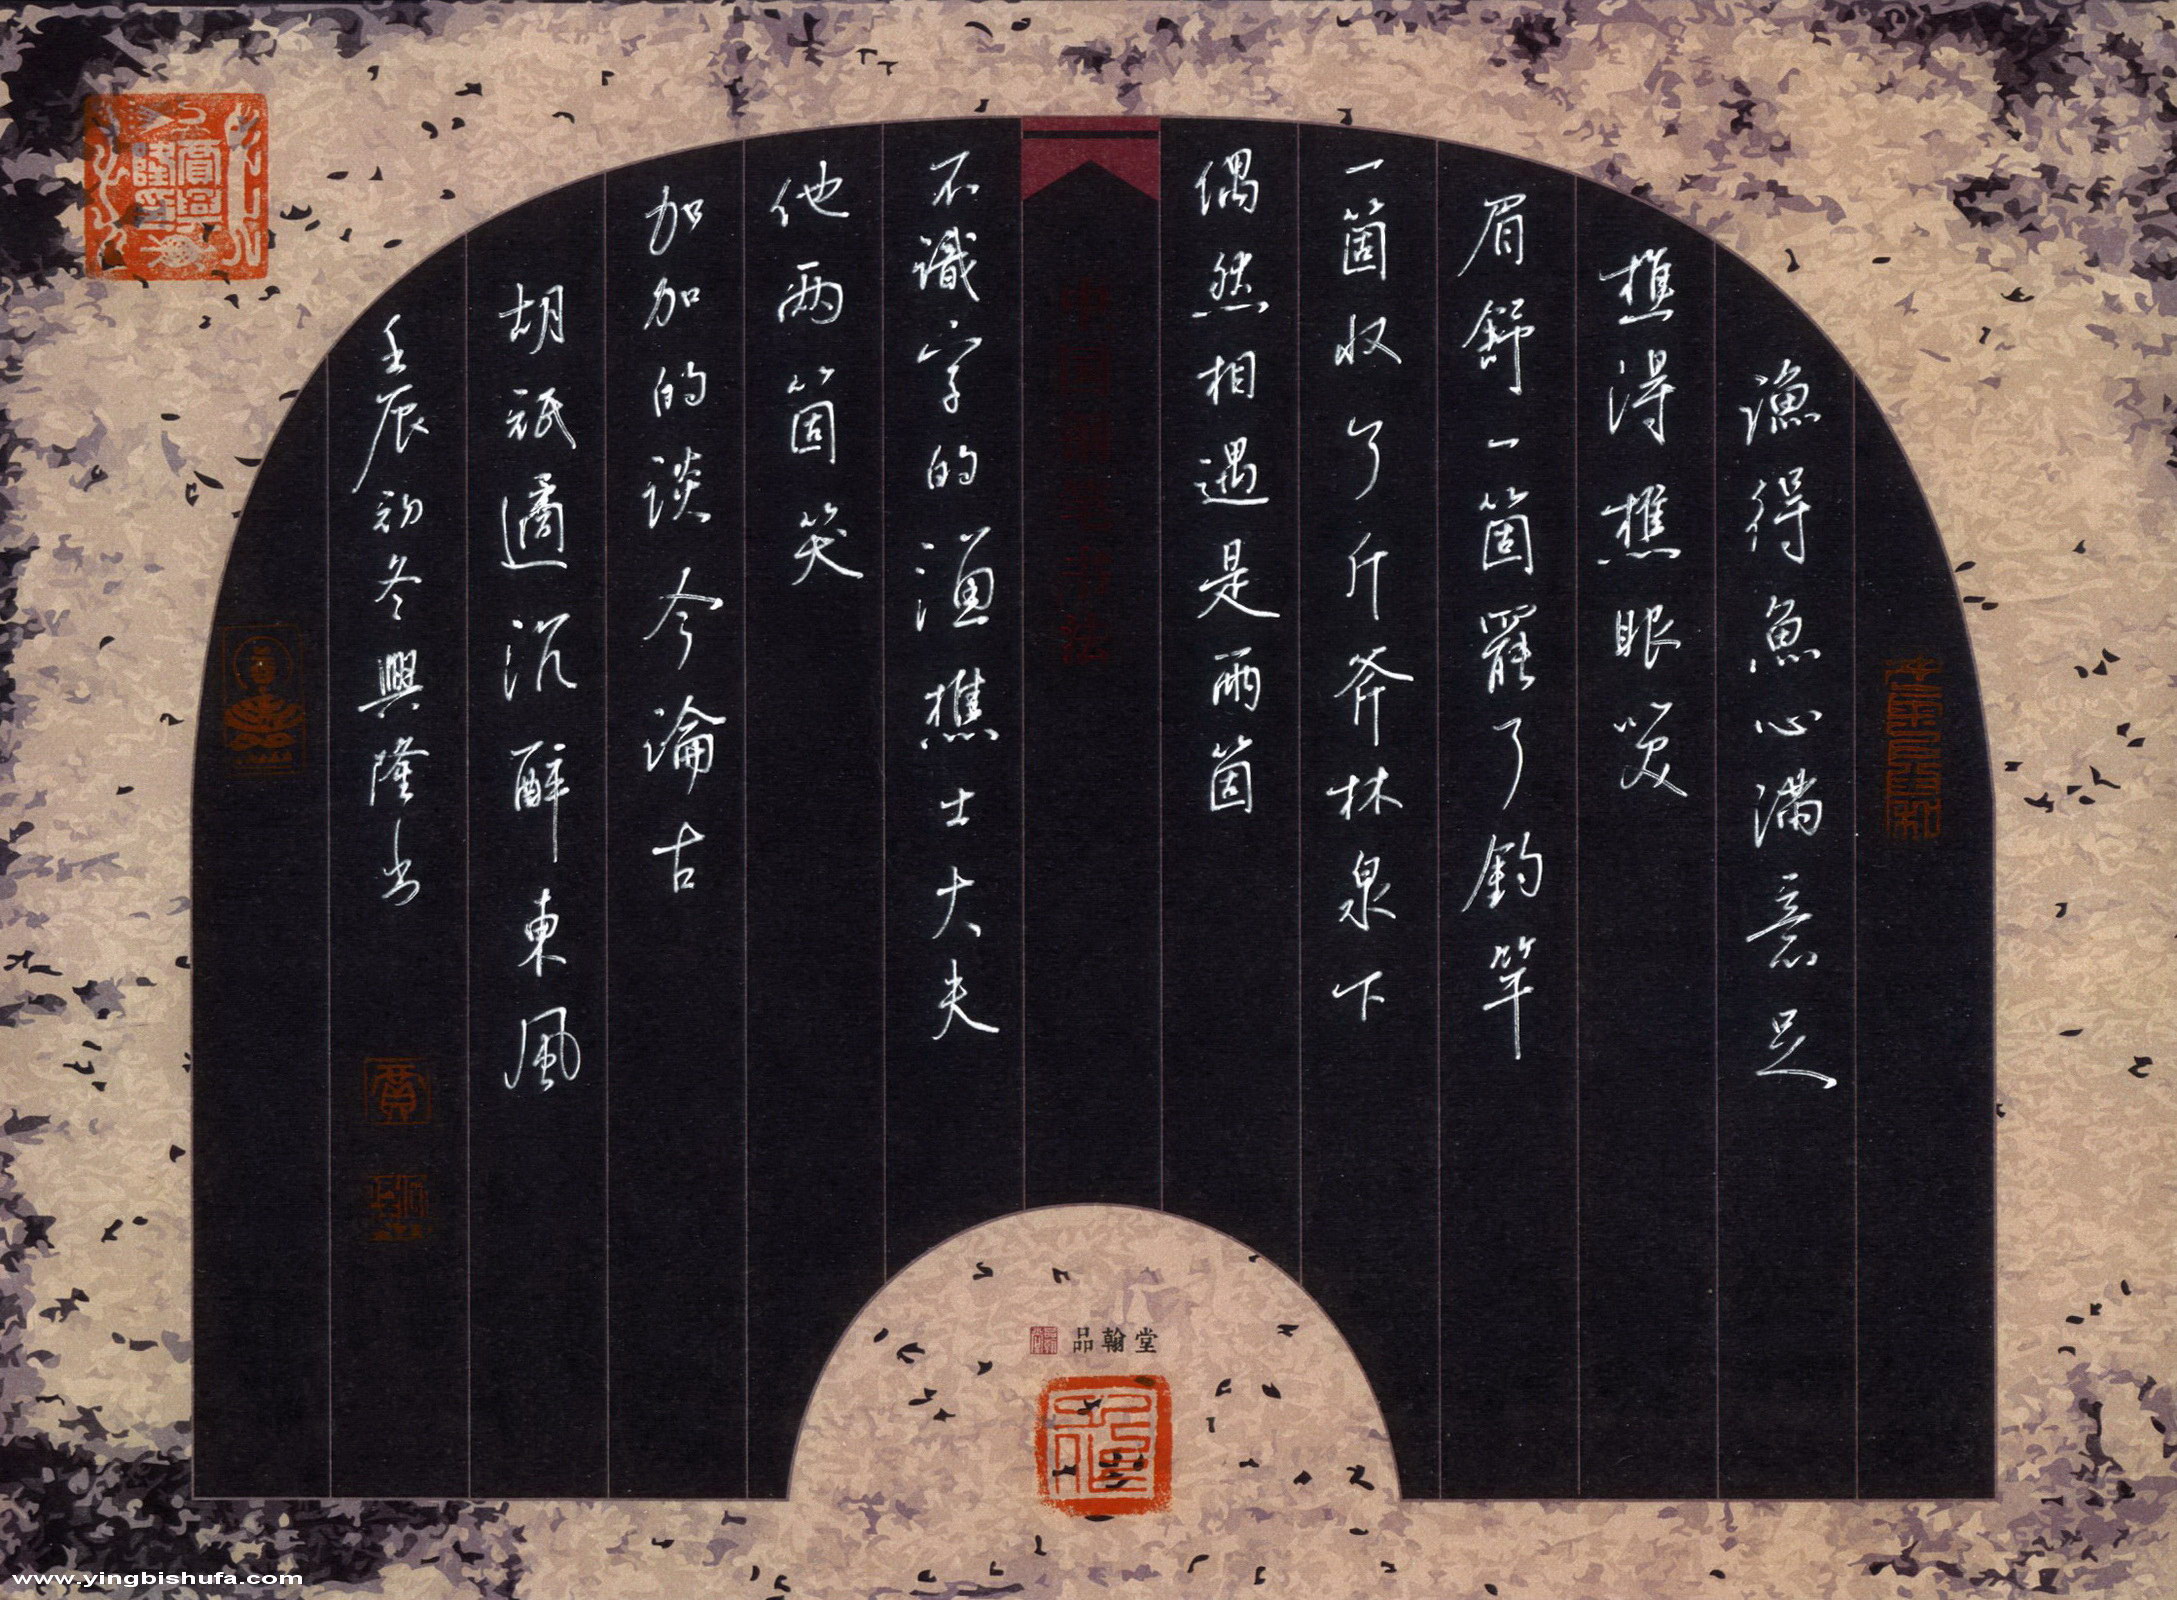 漁得魚心滿意足
樵得樵眼笑
眉舒一箇罷了釣竿
一箇收了斤斧林泉下
偶然相遇是兩箇
不識字的漁樵士大夫
他兩箇笑
加加的談今論古
胡祗遹沉醉東風
壬辰初冬興隆书
品翰堂
www.yingbishufa.com